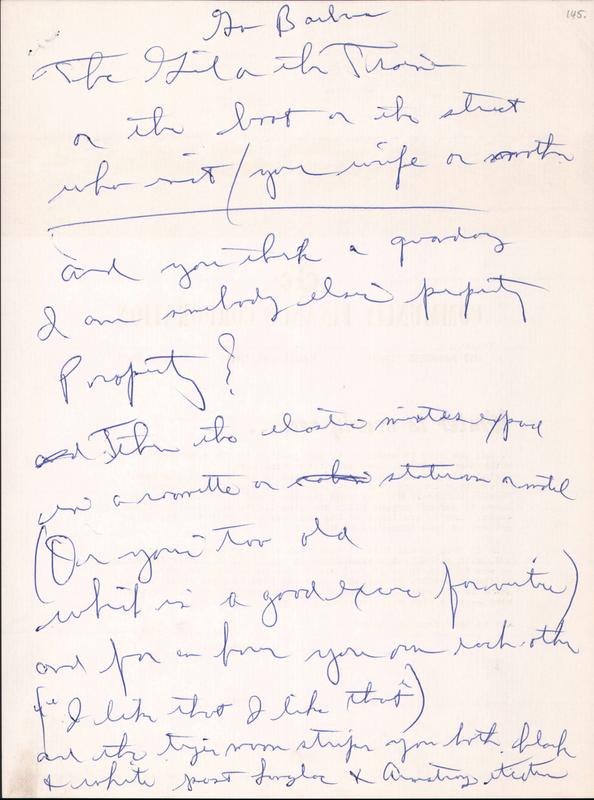 145.
For Barbara
The Girl on the Train
or the boat or the street
who isn't / your wife or mother
and you think a quandary
I am somebody else's property
Property?
and Then the elastic minutes expand
in a roomette or stateroom or motel
(Or you're too old
which is a good excuse for virtue)
and for an hour you own each other
("I like that I like that")
and the tiger moon stripes you both black
& white past Douglas & Armstrong